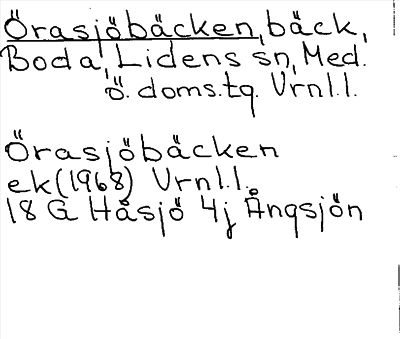 Örasjöbäcken, bäck,
Boda, Lidens sn, Med.
ö. doms.tg. Vrnl.l.
Örasjöbäcken
ek(1968) Vrnl.l.
18 G Håsjö 4j Ångsjön